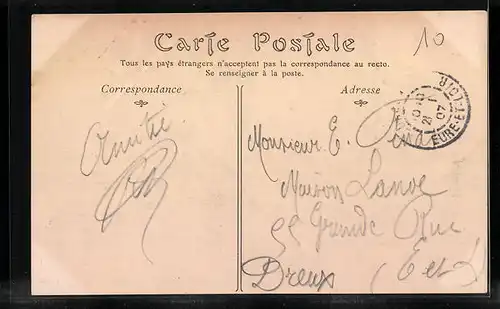 10
Carte Postale
Tous les pays étrangers n'acceptent pas la correspondance au recto.
Se renseigner à la poste.
Correspondance
Adresse
EURE-ET-LOIR
21
07
Amitié
Monsieur E.
Maison
Grande Rue
Dreux (E et L)